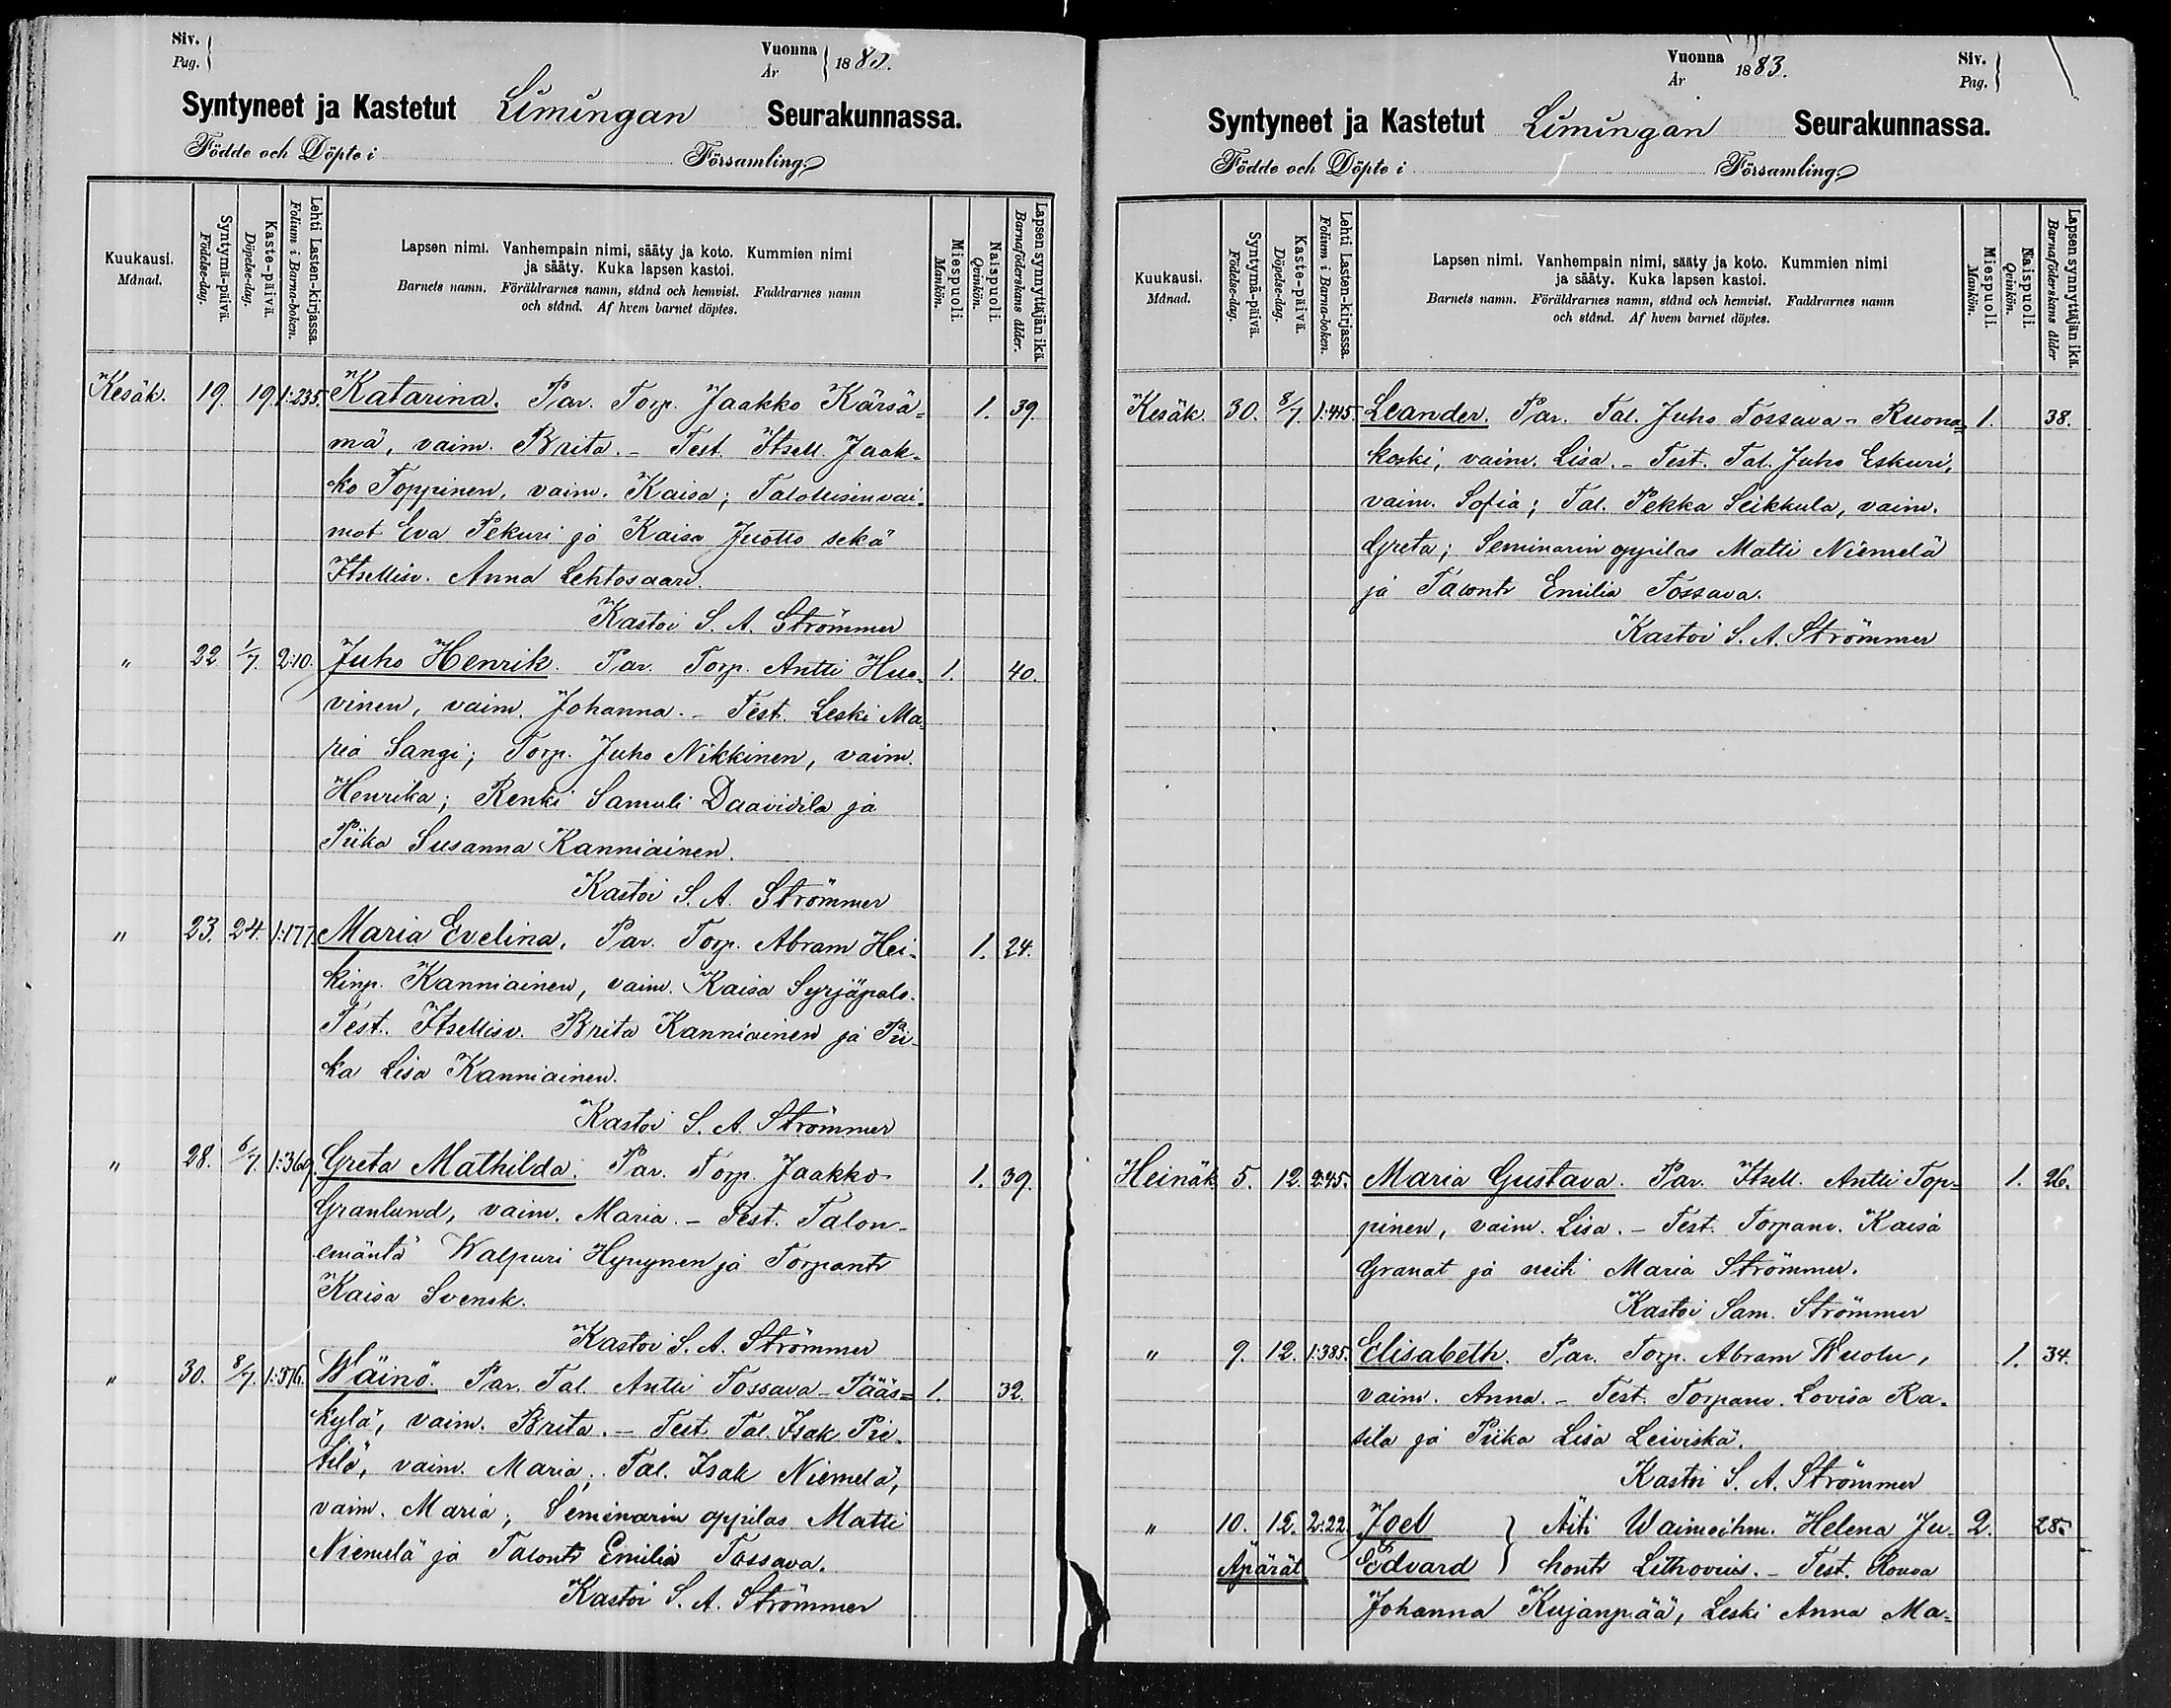 Siv.
Pag.
Vuonna
År
1883.
Syntyneet ja Kastetut Limingan Seurakunnassa.
Födde och Döpte i Församling
Kuukausi.
Månad.
Syntymä-päivä.
Födelse-dag.
Kaste-päivä.
Döpelse-dag.
Lehti Lasten-kirjassa.
Folium i Barna-boken.
Lapsen nimi. Vanhempain nimi, sääty ja koto. Kummien nimi
ja sääty. Kuka lapsen kastoi.
Barnets namn. Föräldrarnes namn, stånd och hemvist. Faddrarnes namn
och stånd. Af hvem barnet döptes.
Miespuoli.
Mankön.
Naispuoli.
Qvinkön.
Lapsen synnyttäjän ikä.
Barnaföderskans ålder.
Kesäk. 19. 19. 1:235. Katarina. Par. Torp. Jaakko Kärsä- 1. 39.
mä, vaim. Brita. - Test. Itsell. Jaak-
ko Toppinen, vaim. Kaisa; Talollisen vai-
mot Eva Pekuri ja Kaisa Juotto sekä
Itsellisv. Anna Lehtosaari.
Kastoi S. A. Strömmer
" 22 1/7. 2:10. Juho Henrik. Par. Torp. Antti Huo- 1. 40.
vinen, vaim. Johanna. - Test. Leski Ma-
ria Sangi; Torp. Juho Nikkinen, vaim.
Henrika; Renki Samuli Daavidila ja
Piika Susanna Kanniainen.
Kastoi S. A. Strömmer
" 23. 24. 1:177. Maria Evelina. Par. Torp. Abram Hei- 1. 24.
kinp. Kanniainen, vaim. Kaisa Syrjäpalo.
Test. Itsellisv. Brita Kanniainen ja Pii-
ka Lisa Kanniainen.
Kastoi S. A. Strömmer
" 28. 6/7. 1:369. Greta Mathilda. Par. Torp. Jaakko 1. 39.
Granlund, vaim. Maria. - Test. Talon-
emäntä Walpuri Hyyynen ja Torpantr
Kaisa Svensk.
Kastoi S. A. Strömmer
" 30. 8/7. 1:376. Wäinö. Par. Tal. Antti Tossava-Pääs= 1. 32.
kylä, vaim. Brita. - Test. Tal. Isak Pie-
tilä, vaim. Maria; Tal. Isak Niemelä,
vaim. Maria; Seminarin oppilas Matti
Niemelä ja Talontr Emilia Tossava.
Kastoi S. A. Strömmer
Vuonna
År
1883.
Siv.
Pag.
Syntyneet ja Kastetut Limingan Seurakunnassa.
Födde och Döpte i Församling
Kuukausi.
Månad.
Syntymä-päivä.
Födelse-dag.
Kaste-päivä.
Döpelse-dag.
Lehti Lasten-kirjassa.
Folium i Barna-boken.
Lapsen nimi. Vanhempain nimi, sääty ja koto. Kummien nimi
ja sääty. Kuka lapsen kastoi.
Barnets namn. Föräldrarnes namn, stånd och hemvist. Faddrarnes namn
och stånd. Af hvem barnet döptes.
Miespuoli.
Mankön.
Naispuoli.
Qvinkön.
Lapsen synnyttäjän ikä.
Barnaföderskans ålder
Kesäk. 30. 8/7. 1:415. Leander. Par. Tal. Juho Tossava-Ruona= 1. 38.
koski, vaim. Lisa. - Test. Tal. Juho Eskuri,
vaim. Sofia; Tal. Pekka Seikkula, vaim.
Greta; Seminarin oppilas Matti Niemelä
ja Talontr Emilia Tossava.
Kastoi S. A. Strömmer
Heinäk. 5. 12. 2:45. Maria Gustava. Par. Itsell. Antti Top= 1. 26.
pinen, vaim. Lisa. - Test. Torpanv. Kaisa
Granat ja neiti Maria Strömmer.
Kastoi Sam. Strömmer
" 9. 12. 1:385. Elisabeth. Par. Torp. Abram Wuolu, 1. 34.
vaim. Anna. - Test. Torpanv. Lovisa Ra-
sila ja Piika Lisa Leiviskä.
Kastoi S. A. Strömmer
" 10. 15. 2:22 Joel } Äiti Waimoihm. Helena Ju- 2. 28.
Äpärät Edvard } hontr Lithovius. - Test. Rouva
Johanna Kujanpää, Leski Anna Ma=